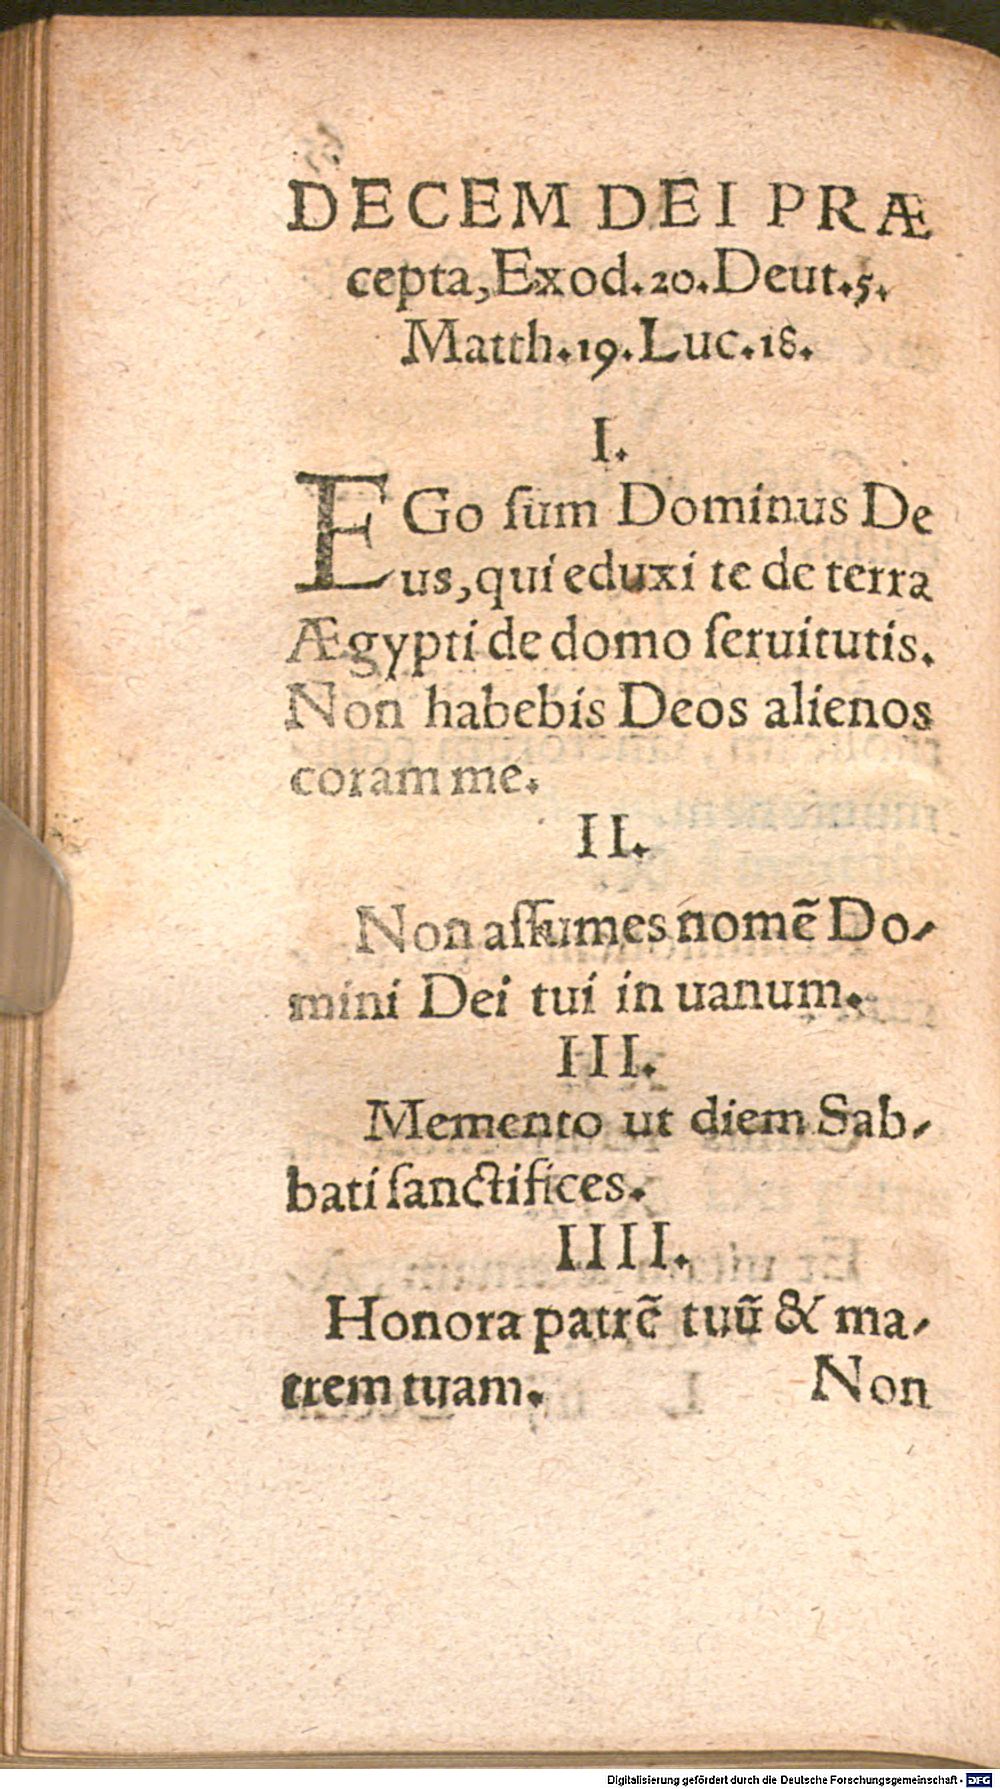 DECEM DEI PRÆ
cepta, Exod. 20. Deut. 5.
Matth. 19. Luc. 18.
I.
EGo ſum Dominus De
us, qui eduxi te de terra
Ægypti de domo ſeruitutis.
Non habebis Deos alienos
coram me.
II.
Non aſſumes nomẽ Do-
mini Dei tui in uanum.
III.
Memento ut diem Sab-
bati ſanctifices.
IIII.
Honora patrẽ tuũ & ma-
trem tuam.
Non
Digitalisierung gefördert durch die Deutsche Forschungsgemeinschaft - DFG